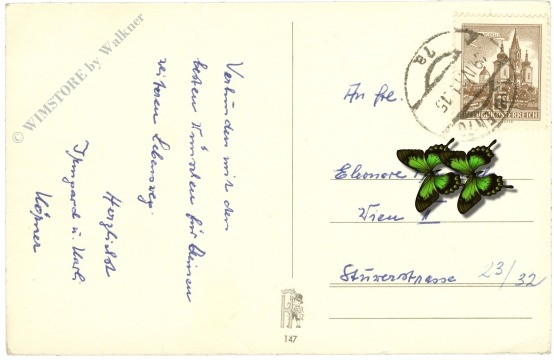 © WIMSTORE by Walkner
Verbunden mit den
besten Wünschen für Deinen
weiteren Lebensweg.
Herzlichst
Irmgard u. Karl
An Frl.
Eleonore
Wien II
Stuwerstrasse 23/32
REPUBLIK ÖSTERREICH
147